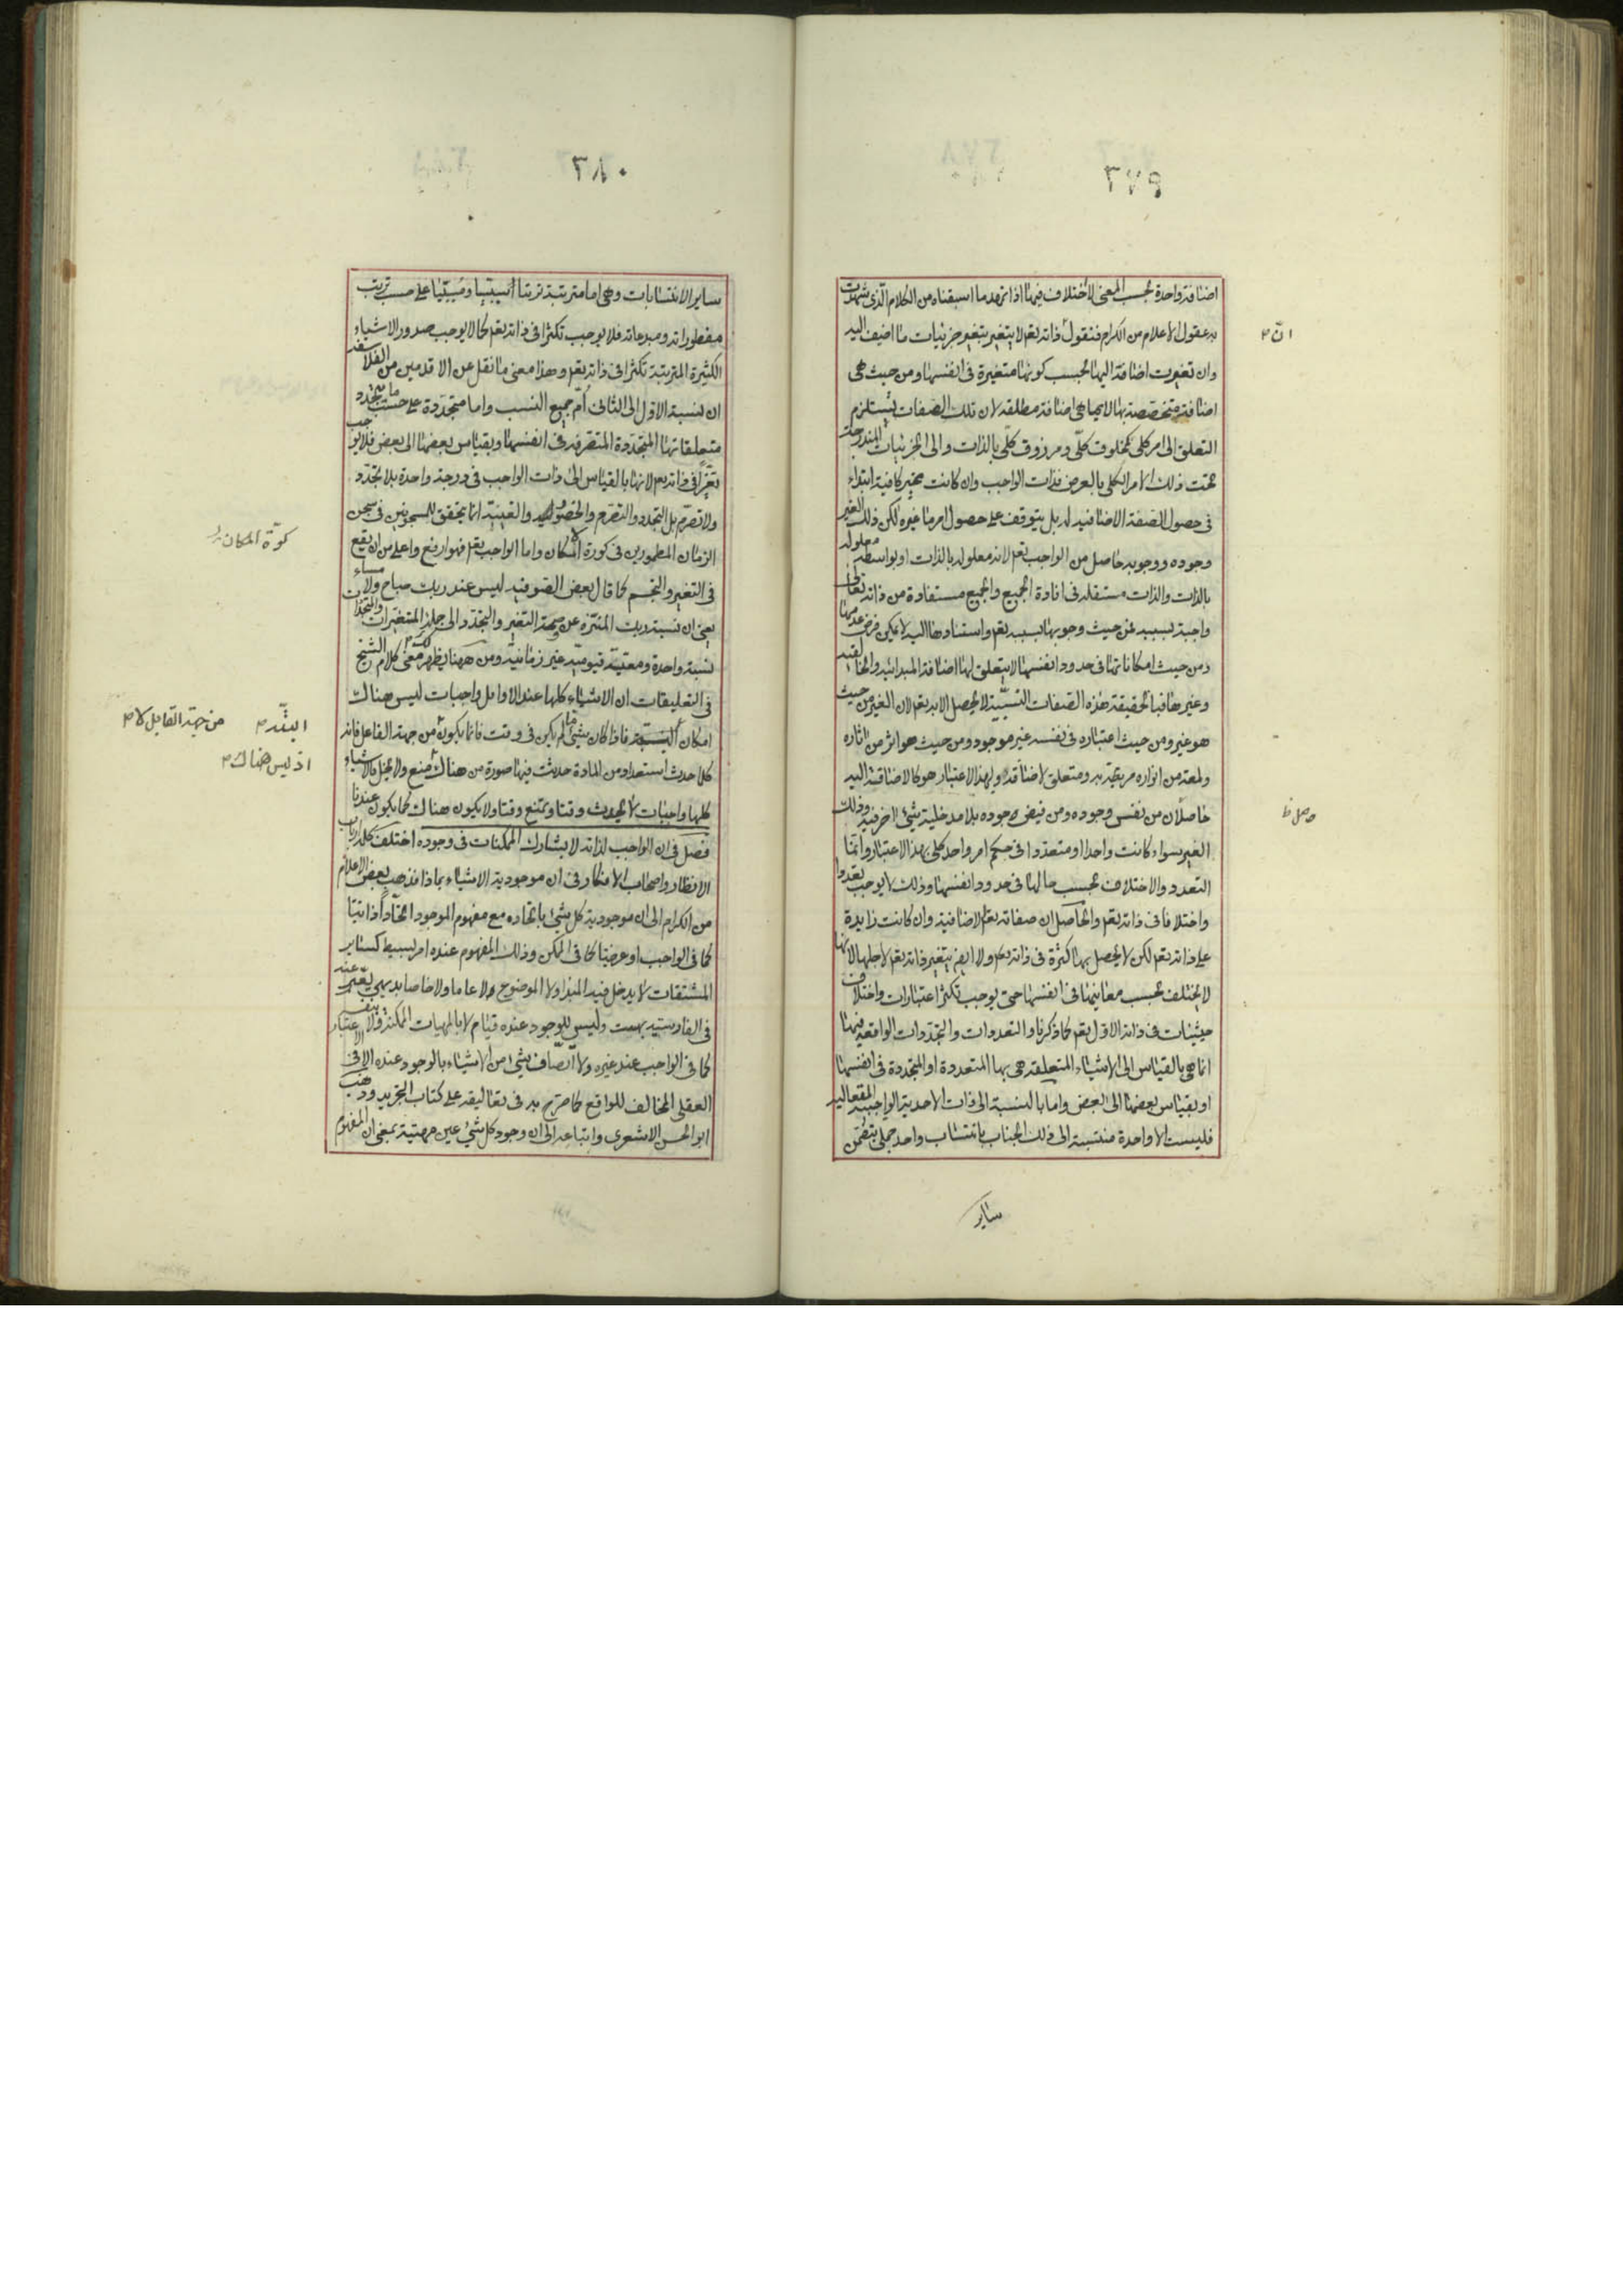 ٣٧٩
اضافة واحدة بحسب المعنى لا اختلاف فيها اذا تمهد ما اسبقناه من الكلام الّذى شهدت
به عقول الاعلام من الكرام فنقول ذاته يقم لا يتغير بتغير جزئيات ما اضيف اليه
وان تغيرت اضافته اليها بحسب كونها متغيرة فى انفسها ومن حيث هى
اضافة متخصصة بها لا بما هى اضافة مطلقة لان تلك الصفات يستلزم
التعلق الى امر كلى كمخلوق كلّى ومرزوق كلّى بالذات والى الجزئيات المندرجة
تحت ذلك الامر الكلى بالعرض فذات الواجب وان كانت غير كافية ابتداء
فى حصول الصفة الاضافية له بل يتوقف على حصول امر ما غيره لكن ذلك الغير
وجوده ووجوبه حاصل من الواجب يقم لانه معلوله بالذات او بواسطة معلوله
بالذات والذات مستقلة فى افادة الجميع والجميع مستفادة من ذاته تعالى
واجبة بسببه فمن حيث وجوبها بسببه يقم واستنادها اليه لا يمكن فرض عدمها
ومن حيث امكاناتها فى حدود انفسها لا يتعلق لها اضافة المبدائية والخالقية
وغيرهما فبالحقيقة هذه الصفات النسبيّة لا يحصل الا به يقم لان الغير من حيث
هو غير ومن حيث اعتباره فى نفسه غير موجود ومن حيث هو اثر من اثاره
ولمعة من انواره مرتبط به ومتعلق لاضافته وبهذا الاعتبار هو كالاضافة اليه
حاصلان من نفس وجوده ومن فيض وجوده بلا مدخلية شئ اخر فيه وذلك
الغير سواء كانت واحدا او متعددا فى حكم امر واحد كلى بهذا الاعتبار وانما
التعدد والاختلاف بحسب حالها فى حدود انفسها وذلك لا يوجب تعددا
واختلافا فى ذاته يقم والحاصل ان صفاته يقم الاضافية وان كانت زايدة
على ذاته يقم لكن لا يحصل بها كثرة فى ذاته يقم ولا ايضم يتغير ذاته يقم لاجلها لانها
لا يختلف بحسب معانيها فى انفسها حتى يوجب تكثر اعتبارات واختلاف
حيثيات فى ذاته الاول يقم كما ذكرنا والتعددات والتجددات الواقعة فيها
انما هى بالقياس الى الاشياء المتعلقة هى بها المتعددة او المتجددة فى انفسها
او بقياس بعضها الى البعض واما بالنسبة الى ذات الاحدية الواجبية المتعالية
فليست الا واحدة منتسبة الى ذلك الجناب بانتساب واحد جملى يتضمن
ساير
انّ م
حصل ظ
٣٨٠
ساير الانتسابات وهى اما مترتبة ترتبا سببيا ومسببيا على حسب ترتيب
مفطوراته ومبدعاته فلا يوجب تكثرا فى ذاته يقم كما لا يوجب صدور الاشياء
الكثيرة المترتبة تكثرا فى ذاته يقم وهذا معنى ما نقل عن الاقدمين من الفلاسفة
ان نسبة الاول الى الثانى أُمّ جميع النسب واما متجددة على حسب ما يتجدد
متعلقاتها المتجددة المتصرفة فى انفسها وبقياس بعضها الى بعض فلا يوجب
تغيّرا فى ذاته يقم لانها بالقياس الى ذات الواجب فى درجة واحدة بلا تجدّد
ولا تصرّم بل التجدد والتصرم والحضور والغيبة انما يتحقق للمسجونين فى سجن
الزمان المطمورين فى كورة المكان واما الواجب يقم فهو ارفع واعلى من ان يقع
فى التغير والتجسم كما قال بعض الصوفية ليس عند ربك صباح ولا مساء
يعنى ان نسبة ربك المنزّه عن وصمة التغير والتجدد الى جملة المتغيرات والمتجددات
نسبة واحدة ومعيّة قيوميّة غير زمانيّة ومن ههنا يظهر لك معنى كلام الشيخ
فى التعليقات ان الاشياء كلها عند الاوايل واجبات ليس هناك
امكان البتة فاذا كان شئ ما لم يكن فى وقت فانما يكون من جهة الفاعل فانه
كلما حدث استعداد من المادة حدثت فيها صورة من هناك منع ولا بخل فالاشياء
كلها واجبات لا يحدث وقتا ويمتنع وقتا ولا يكون هناك كما يكون عندنا
فصل فى ان الواجب لذاته لا يشارك الممكنات فى وجوده اختلف كلمة ارباب
الانظار واصحاب الافكار فى ان موجودية الاشياء بماذا فذهب بعض الاعلام
من الكرام الى ان موجودية كل شئ باتحاده مع مفهوم الموجود اتحادا ذاتيّا
كما فى الواجب او عرضيّا كما فى الممكن وذلك المفهوم عنده امر بسيط كساير
المشتقات لا يدخل فيه المبداء ولا الموضوع ولا عاما ولا خاصا بديهى يعبّر عنه
فى الفارسيّة بهست وليس للوجود عنده قيام لا بالمهيات الممكنة ولا بنفسه
كما فى الواجب عند غيره ولا اتّصاف شئ من الاشياء بالوجود عنده الا فى الاعتبار
العقلى المخالف للواقع كما صرّح به فى تعاليقه على كتاب التجريد وذهب
ابو الحسن الاشعرى واتباعه الى ان وجود كل شئ عين مهيته بمعنى ان المفهوم
كوّة المكان
البتّة م من جهة القابل لا م
اذ ليس هناك م